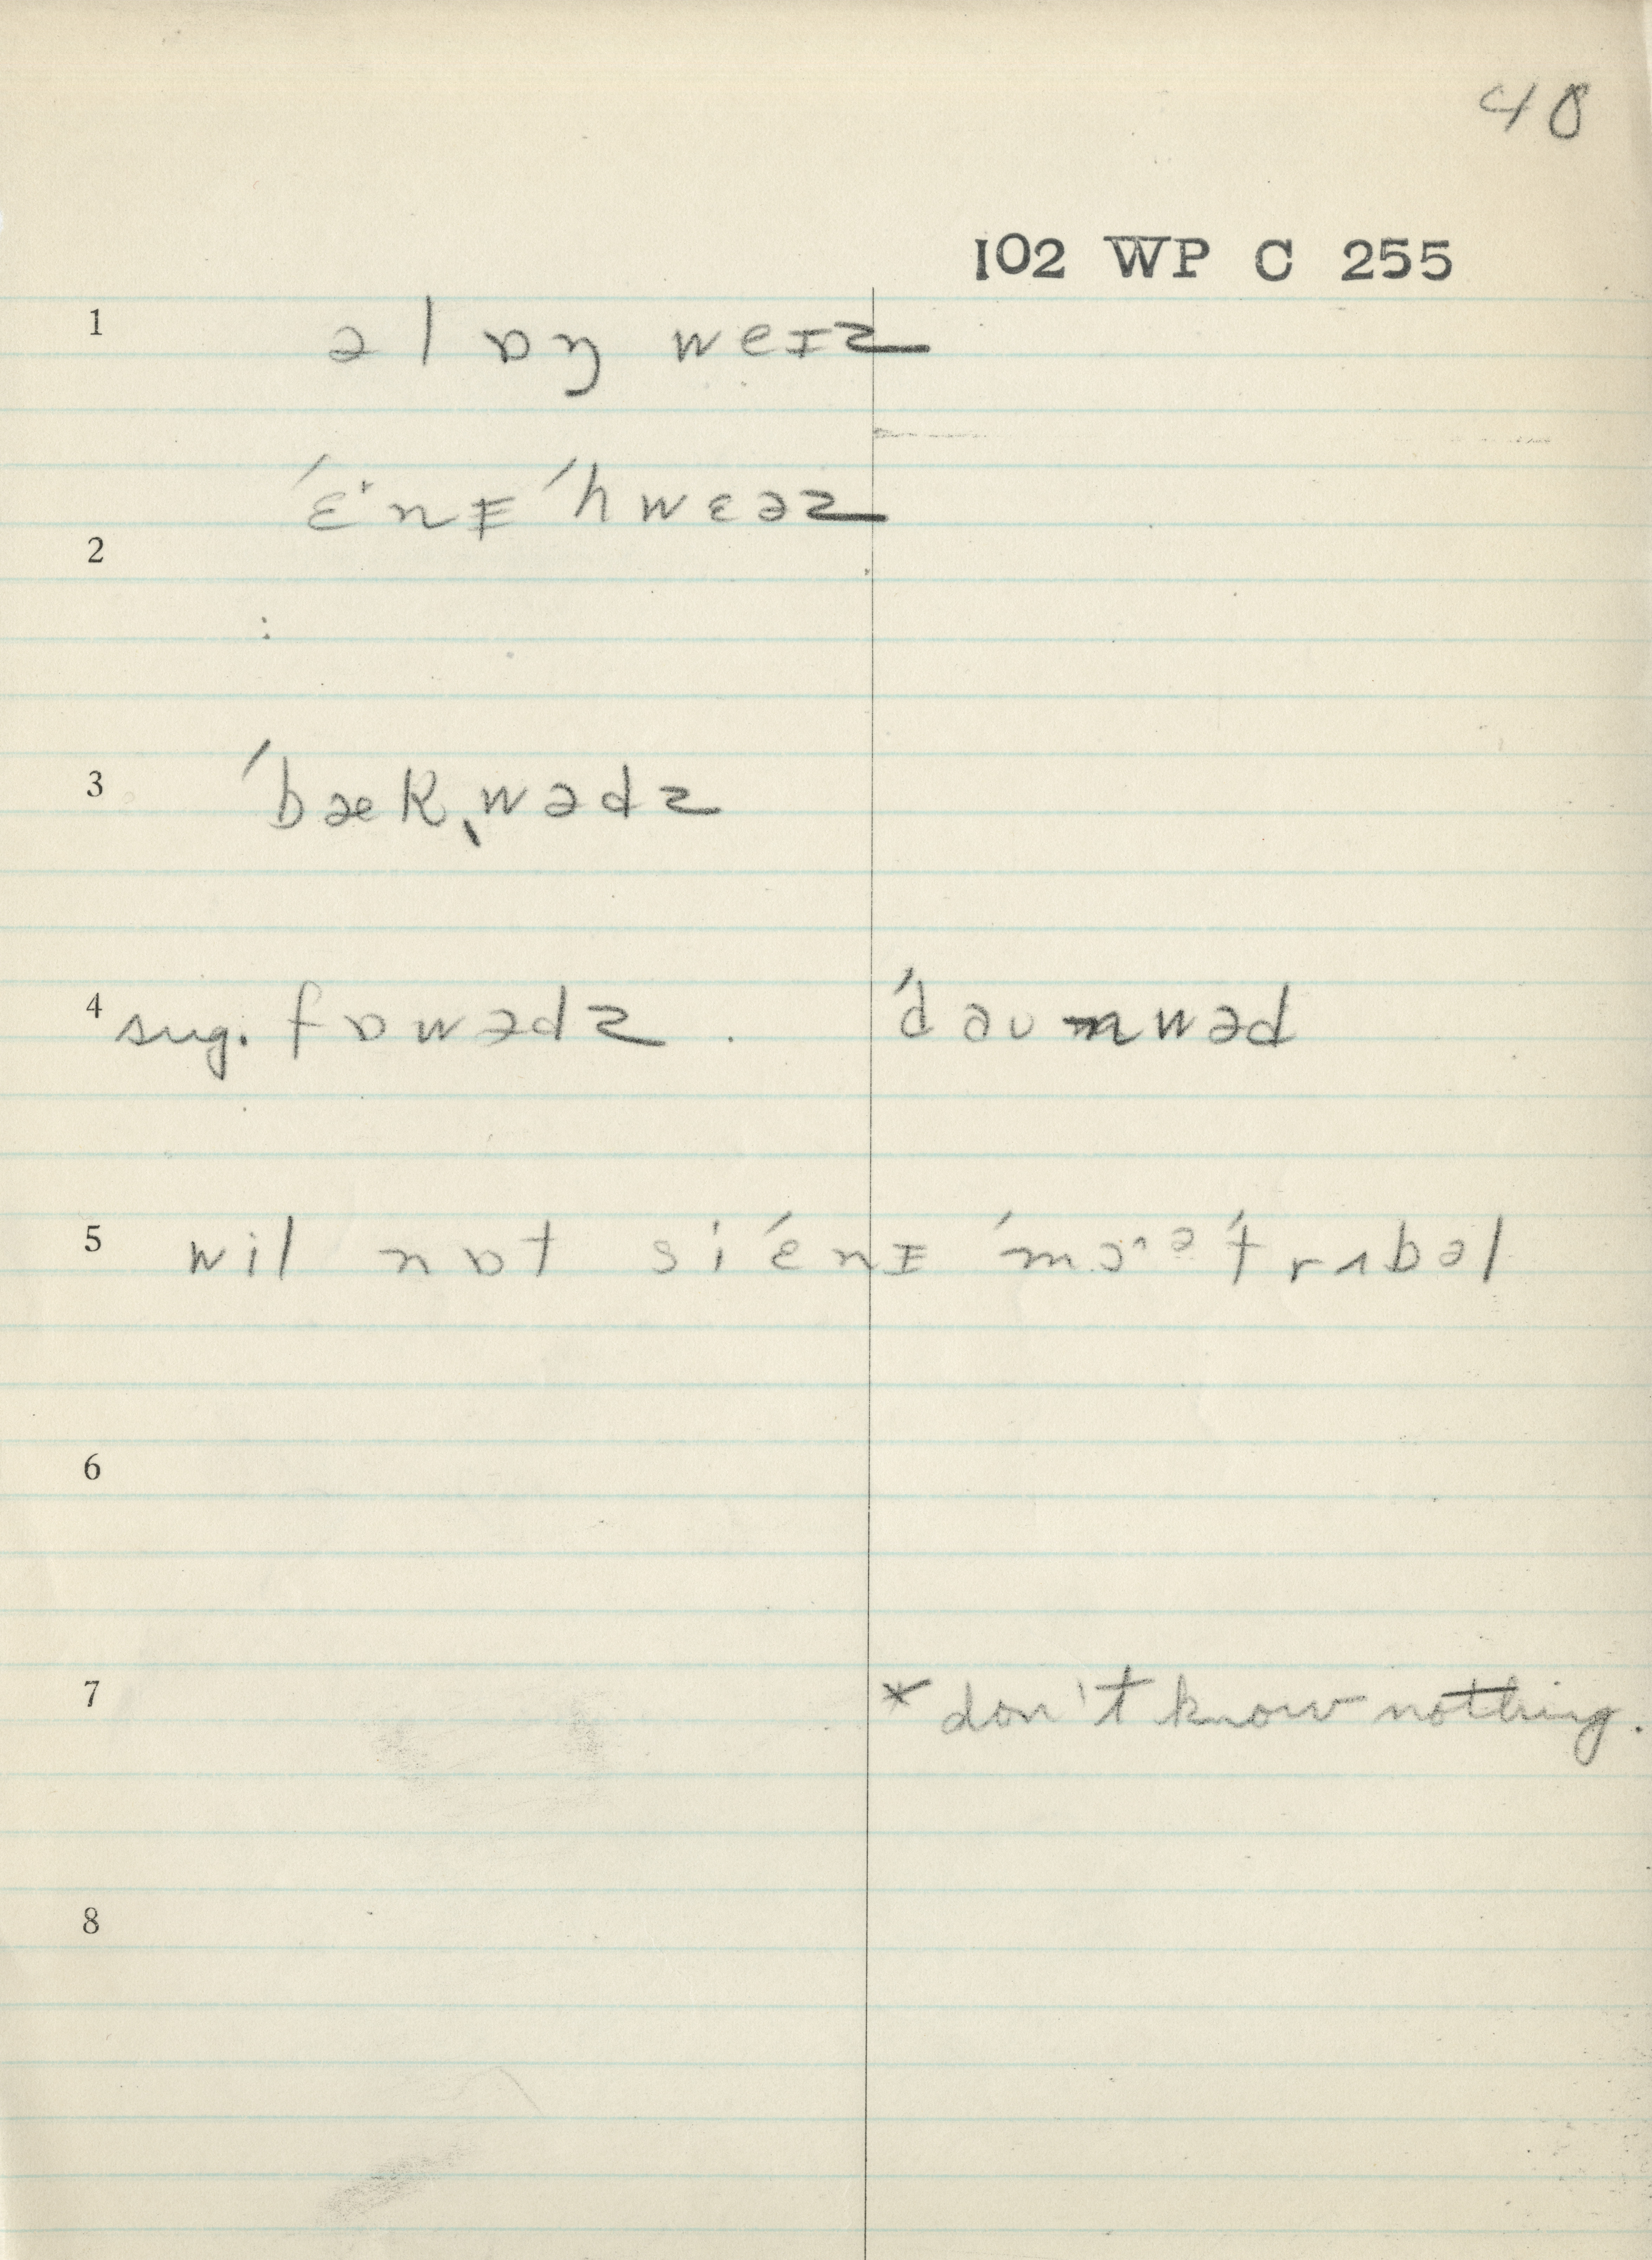 48
102 WP C 255
1 əlɒŋ weɪz
2 ˈɛˑnɪ ˈhwɛəz
3 ˈbækˌwədz
4 sug. fɒwədz . ˈdəʊnwəd
5 wil nɒt si ˈɛnɪ ˈmɔˑᵊ ˈtrʌbəl
6
7 * don't know nothing.
8